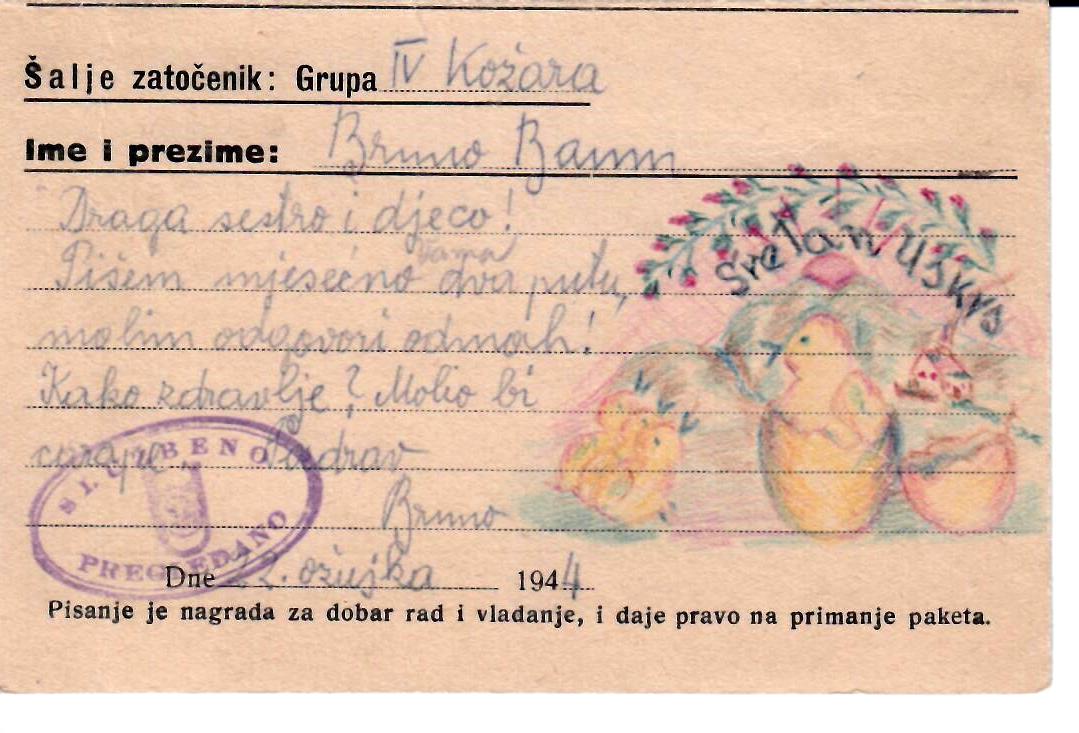 Šalje zatočenik: Grupa IV Kožara
Ime i prezime: Bruno Baum
Draga sestro i djeco!
Vama
Pišem mjesečno dva puta,
molim odgovori odmah!
Kako zdravlje? Molio bi
čarape Pozdrav
Bruno
Sretan Uskrs
SLUŽBENO
PREGLEDANO
Dne 22. ožujka 1944
Pisanje je nagrada za dobar rad i vladanje, i daje pravo na primanje paketa.